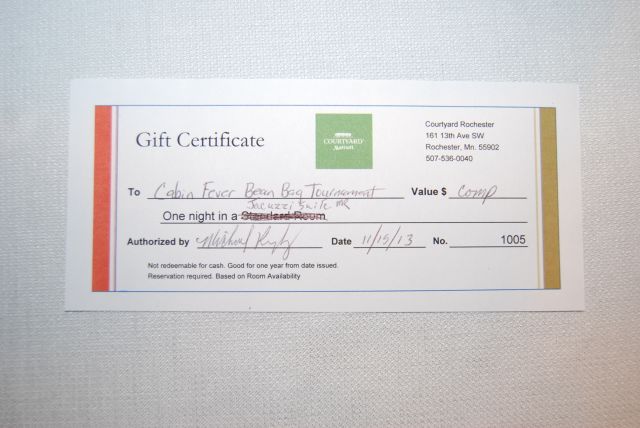 Gift Certificate
COURTYARD
Marriott
Courtyard Rochester
161 13th Ave SW
Rochester, Mn. 55902
507-536-0040
To Cabin Fever Bean Bag Tournament Value $ comp
Jacuzzi Suite MR
One night in a Standard Room
Authorized by Date 11/15/13 No. 1005
Not redeemable for cash. Good for one year from date issued.
Reservation required. Based on Room Availability